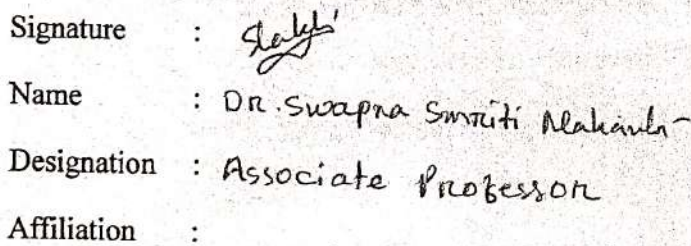 Signature :
Name : DR. Swapna Smriti
Designation : Associate Professor
Affiliation :